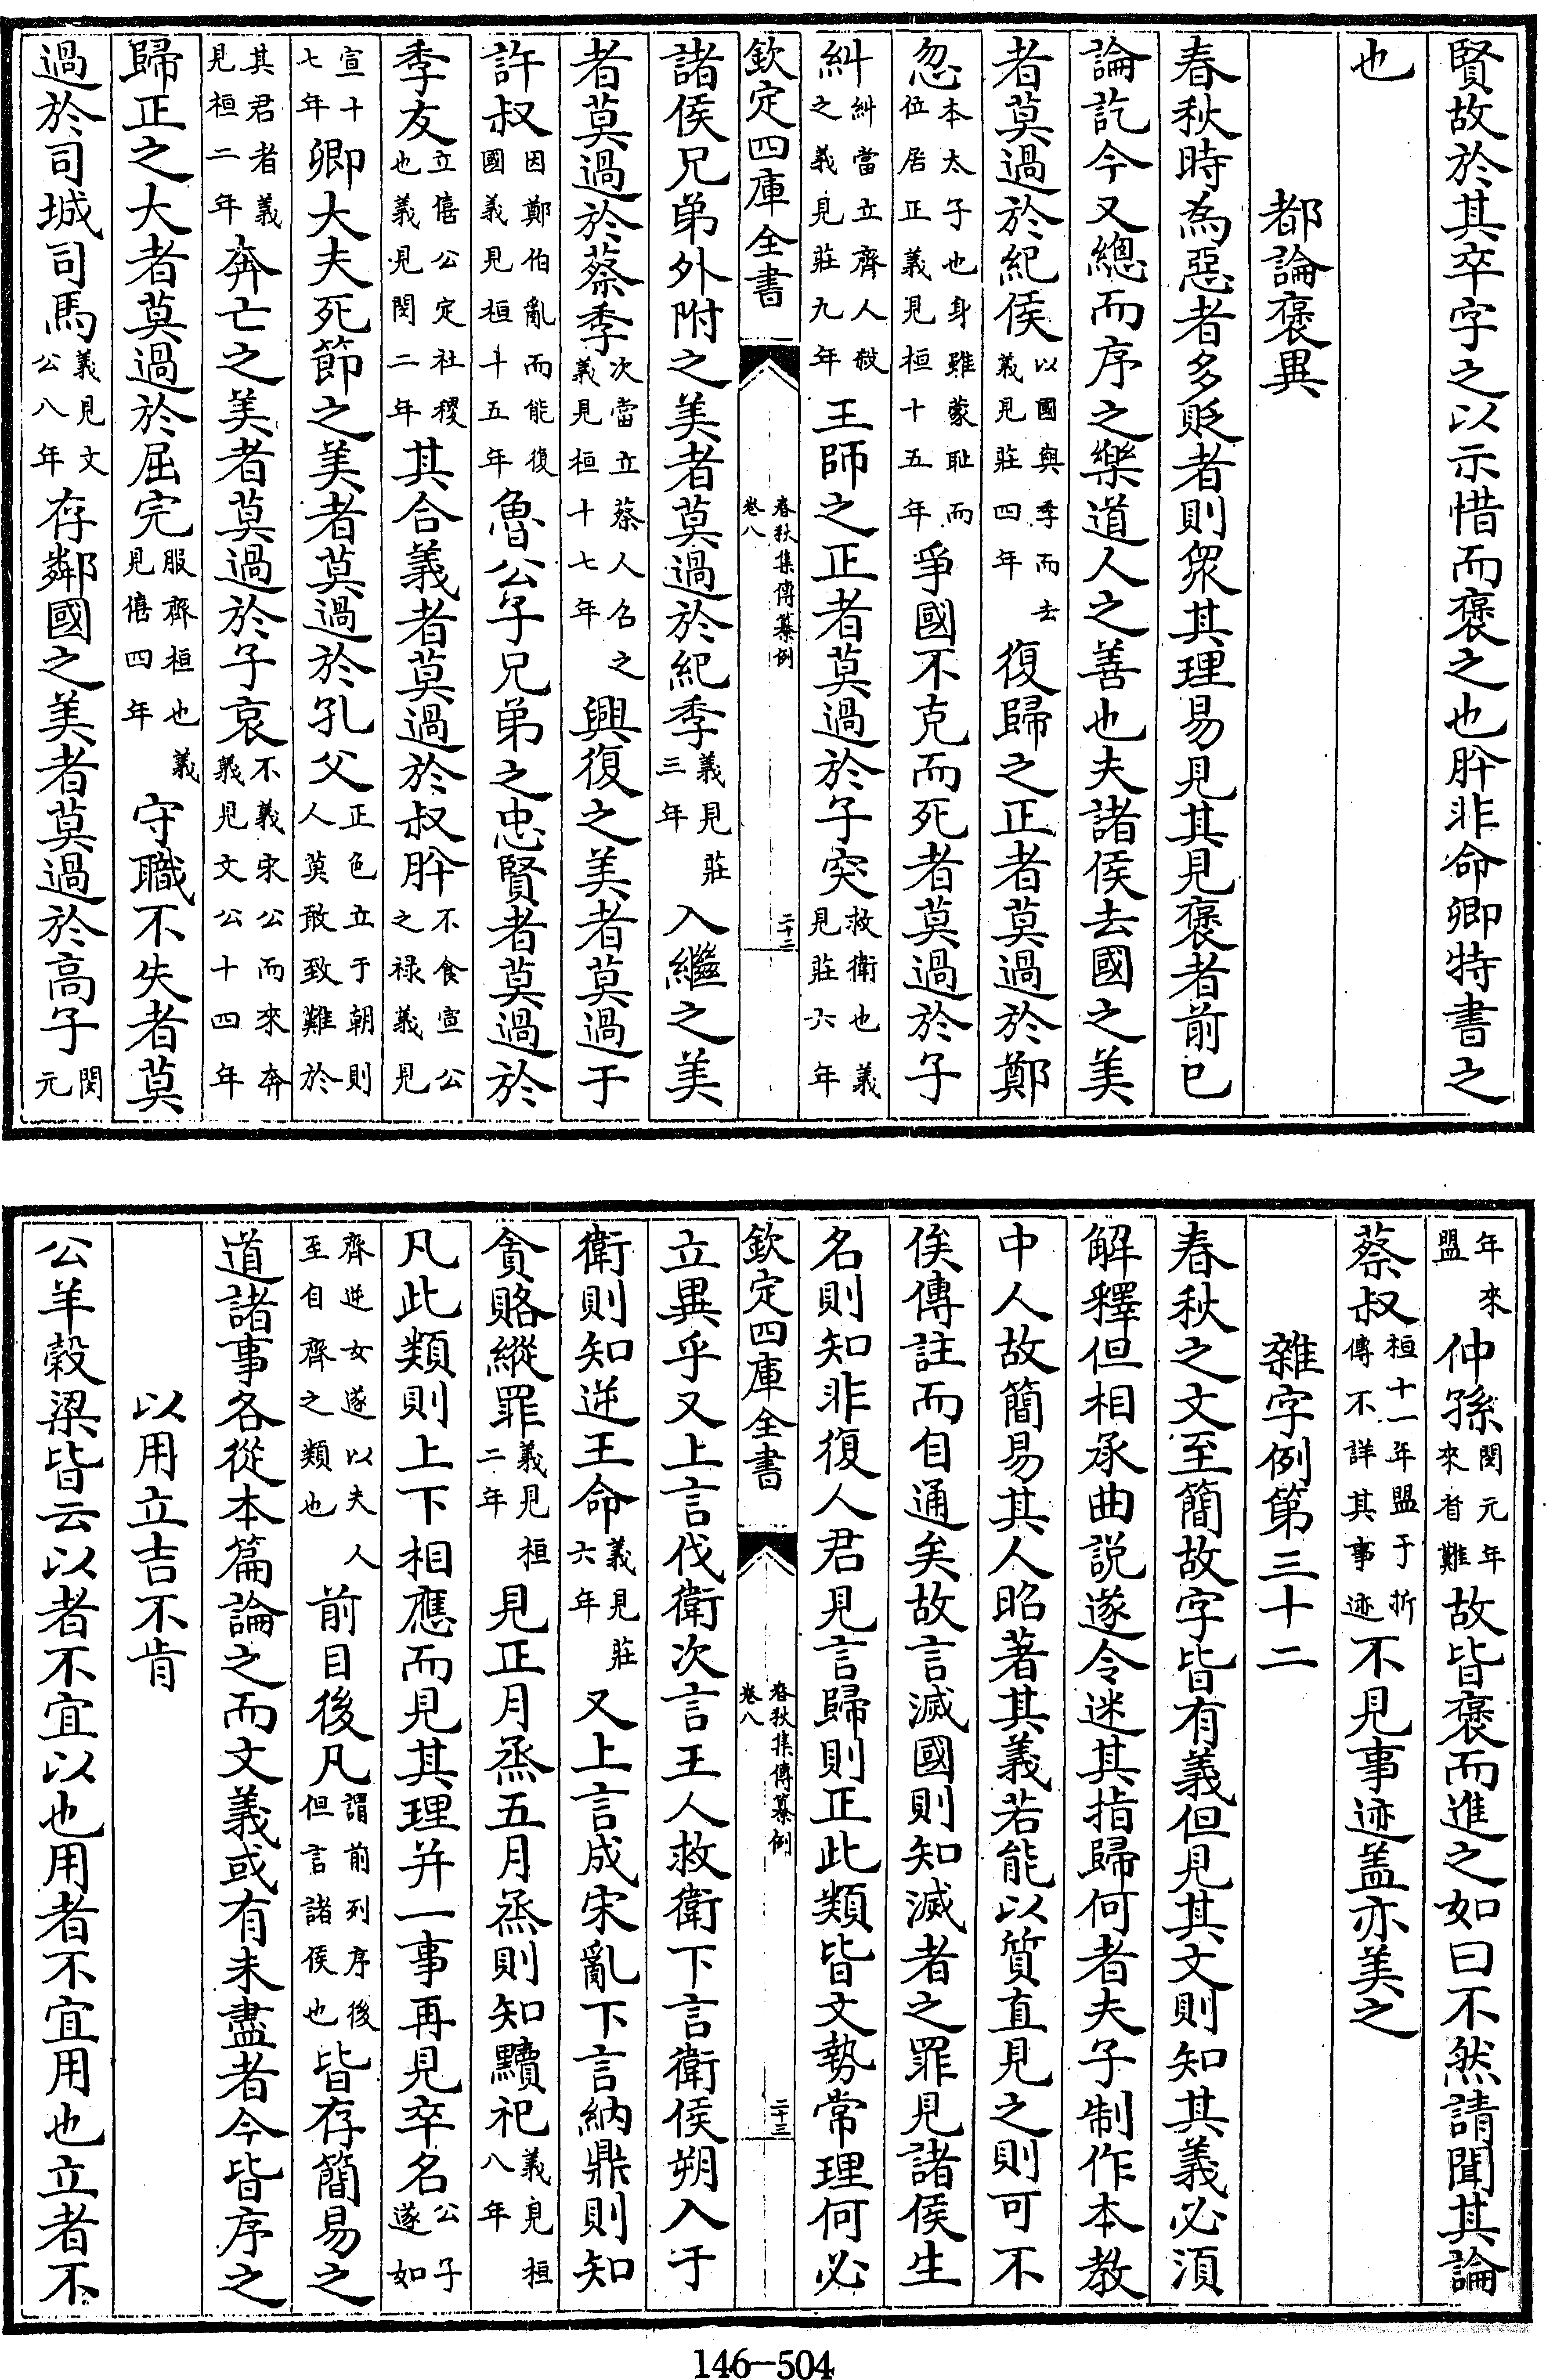 賢故於其卒字之以示惜而褒之也肸非命卿特書之
也
都論褒異
春秋時為惡者多貶者則衆其理易見其見褒者前已
論訖今又總而序之樂道人之善也夫諸侯去國之美
者莫過於紀侯以國與季而去義見莊四年復歸之正者莫過於鄭
忽本太子也身雖蒙恥而位居正義見桓十五年爭國不克而死者莫過於子
糾糾當立齊人殺之義見莊九年王師之正者莫過於子突救衛也義見莊六年
欽定四庫全書
春秋集傳纂例
卷八
二十二
諸侯兄弟外附之美者莫過於紀季義見莊三年入繼之美
者莫過於蔡季次當立蔡人召之義見桓十七年興復之美者莫過于
許叔因鄭伯亂而能復國義見桓十五年魯公子兄弟之忠賢者莫過於
季友立僖公定社稷也義見閔二年其合義者莫過於叔肸不食宣公之禄義見
宣十七年卿大夫死節之美者莫過於孔父正色立于朝則人莫敢致難於
其君者義見桓二年奔亡之美者莫過於子哀不義宋公而來奔義見文公十四年
歸正之大者莫過於屈完服齊桓也義見僖四年守職不失者莫
過於司城司馬義見文公八年存鄰國之美者莫過於高子閔元
年來盟仲孫閔元年來省難故皆褒而進之如曰不然請聞其論
蔡叔桓十一年盟于折傳不詳其事迹不見事迹盖亦美之
雜字例第三十二
春秋之文至簡故字皆有義但見其文則知其義必須
解釋但相承曲説遂令迷其指歸何者夫子制作本教
中人故簡易其人昭著其義若能以質直見之則可不
俟傳註而自通矣故言滅國則知滅者之罪見諸侯生
名則知非復人君見言歸則正此類皆文勢常理何必
欽定四庫全書
春秋集傳纂例
卷八
二十三
立異乎又上言伐衛次言王人救衛下言衛侯朔入于
衛則知逆王命義見莊六年又上言成宋亂下言納鼎則知
貪賂縱罪義見桓二年見正月烝五月烝則知黷祀義見桓八年
凡此類則上下相應而見其理并一事再見卒名公子遂如
齊逆女遂以夫人至自齊之類也前目後凡謂前列序後但言諸侯也皆存簡易之
道諸事各從本篇論之而文義或有未盡者今皆序之
以用立吉不肯
公羊榖梁皆云以者不宜以也用者不宜用也立者不
146-504